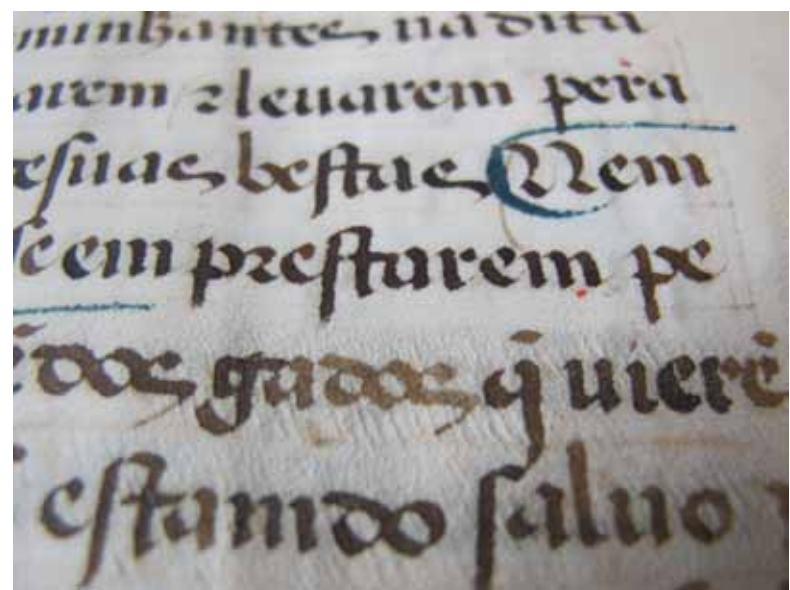 minhantes na dita
arem ⁊ leuarem pera
e suas bestas Nem
se em prestarem pe
ẽ dos gados q̃ uierẽ
estando saluo